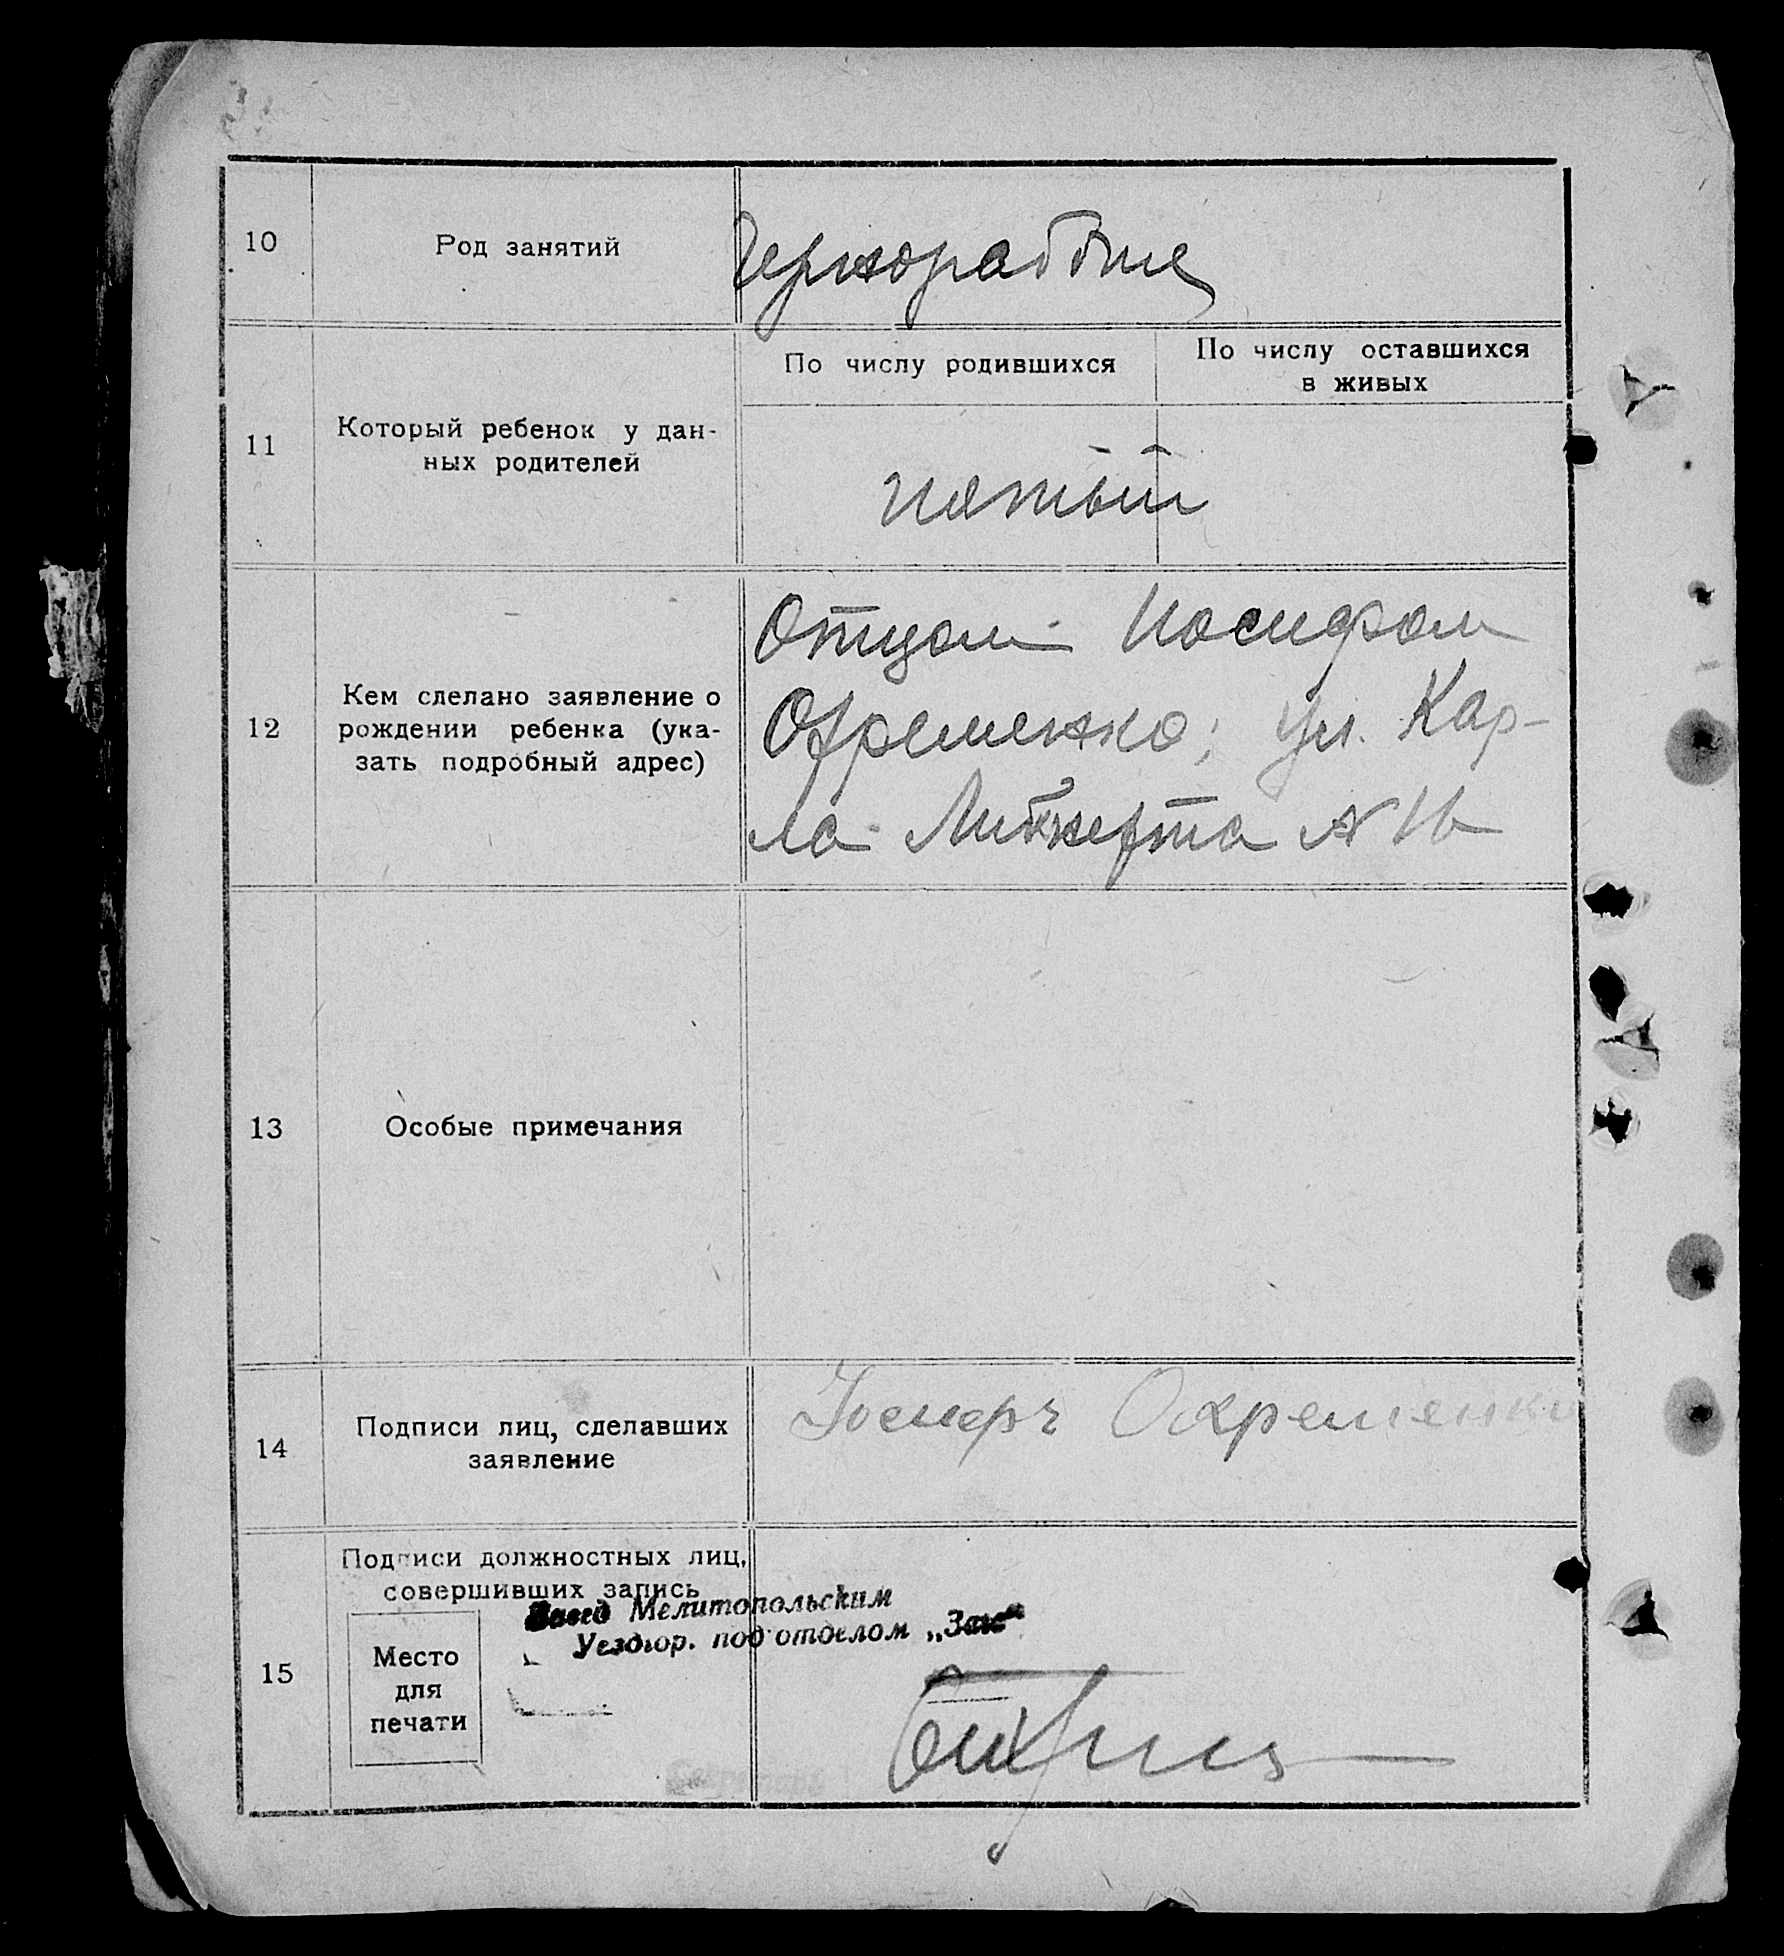 10
Род занятий
Чернорабочие
11
Который ребенок у дан-
ных родителей
По числу родившихся
По числу оставшихся
в живых
пятый
12
Кем сделано заявление о
рождении ребенка (ука-
зать подробный адрес)
Отцом Иосифом
Охременко; ул. Кар-
ла Либкнехта № 16
13
Особые примечания
14
Подписи лиц, сделавших
заявление
Иосифъ Охременко
15
Подписи должностных лиц,
совершивших запись
Завед Мелитопольским
Уездгор. подотделом „Загс“
Место
для
печати